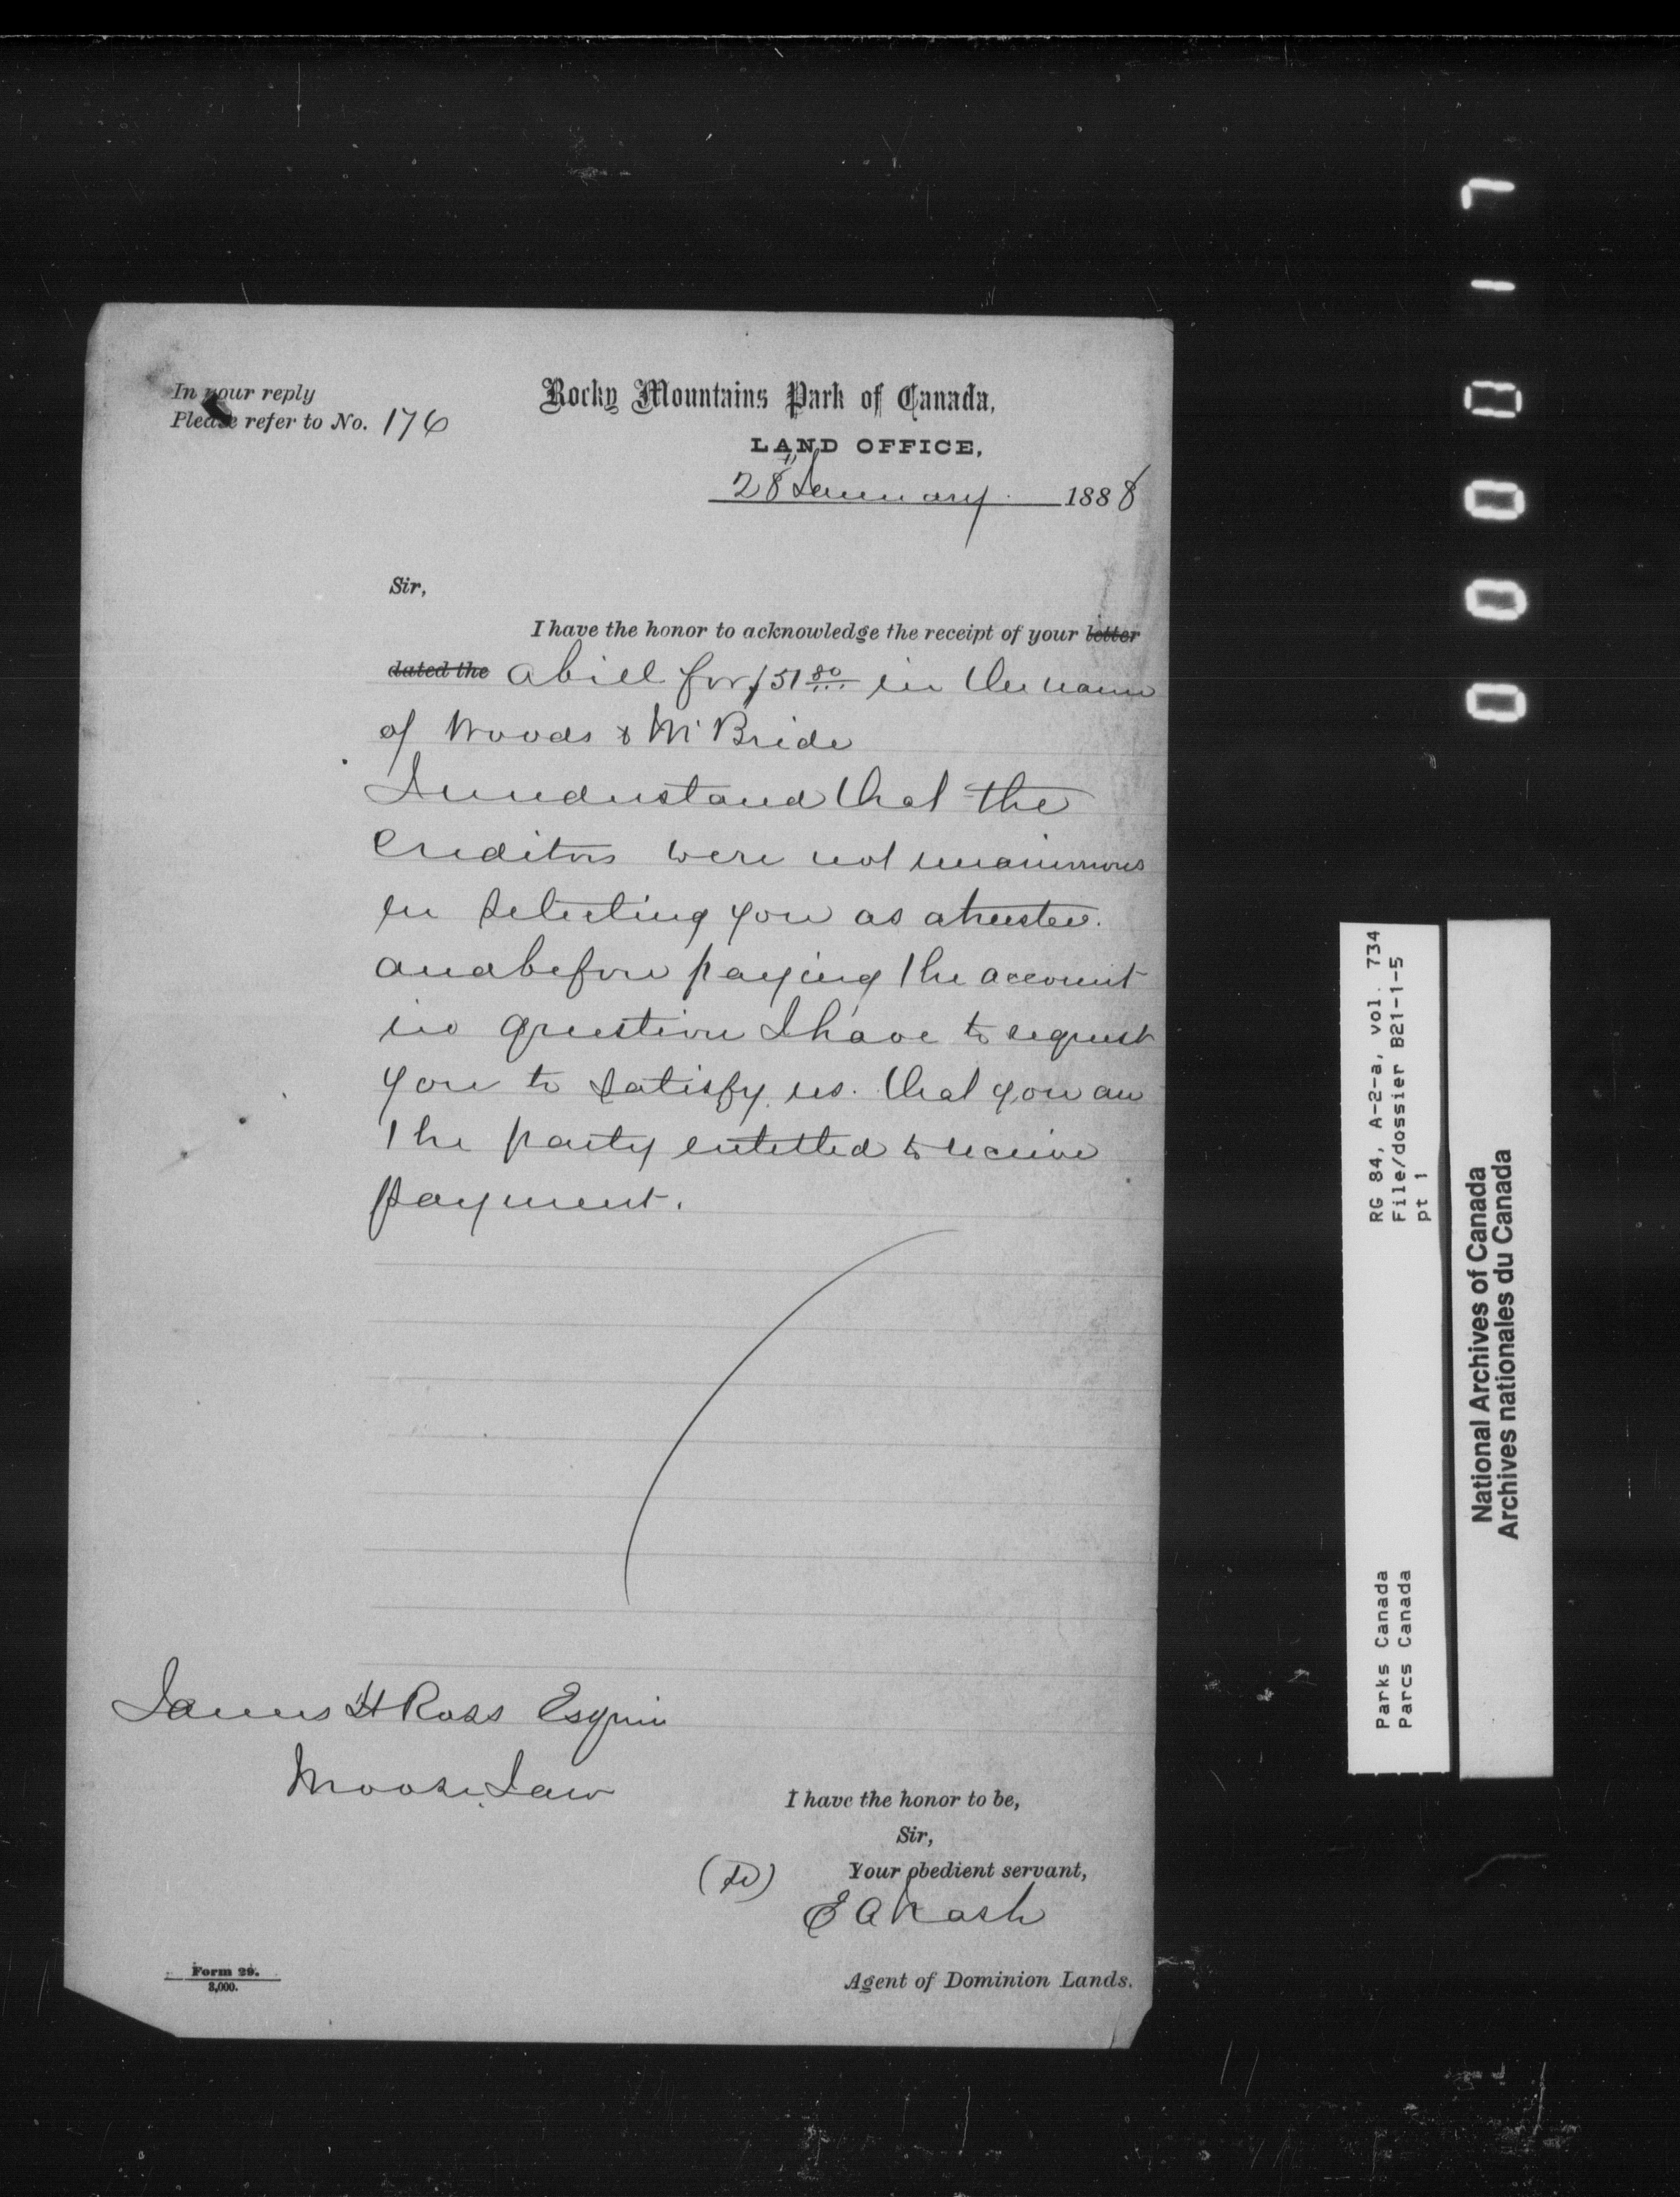 In your reply
Please refer to No. 176
Rocky Mountains Park of Canada,
LAND OFFICE,
28th January 1888
Sir,
I have the honor to acknowledge the receipt of your letter
dated the a bill for $51 80 in the name
of Woods & McBride
I understand that the
Creditors were not unanimous
in selecting you as a trustee.
and before paying the account
in question I have to request
you to satisfy us. that you are
the party entitled to receive
payment.
James H Ross Esquire
Moose Jaw
I have the honor to be,
Sir,
Your obedient servant,
E A Nash
Agent of Dominion Lands.
Form 29.
3,000.
000017
RG 84, A-2-a, vol. 734
File/dossier B21-1-5
pt 1
Parks Canada
Parcs Canada
National Archives of Canada
Archives nationales du Canada